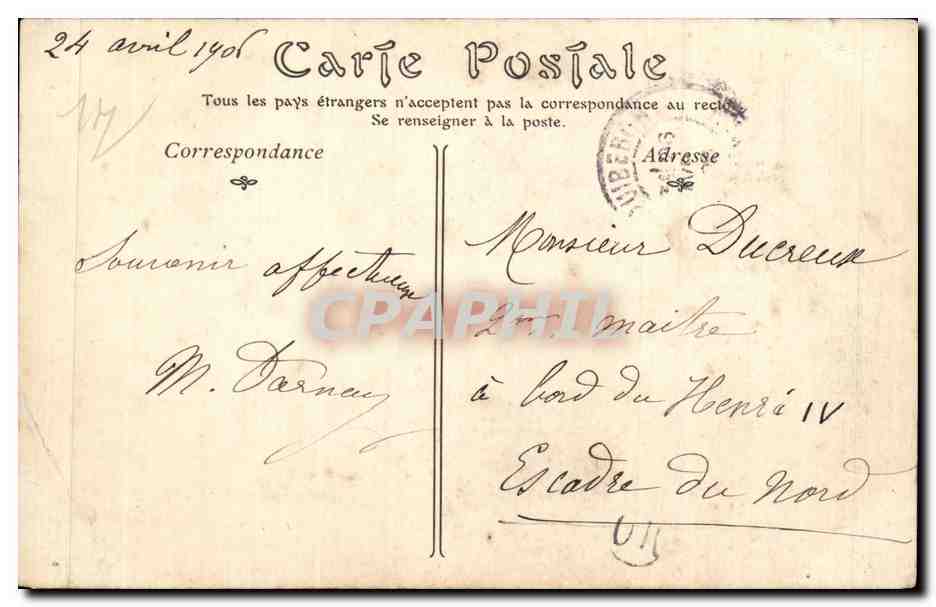 24 avril 1906
Carte Postale
Tous les pays étrangers n'acceptent pas la correspondance au recto
Se renseigner à la poste.
Correspondance
Adresse
QUIBERON
Souvenir affectueux
M. Darnay
Monsieur Ducreux
2me maitre
à bord du Henri IV
Escadre du Nord
CPAPHIL